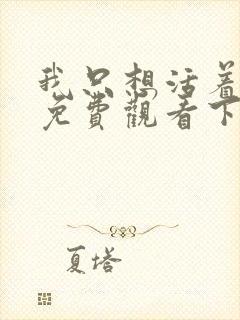 我只想活着
免費觀看下
夏塔